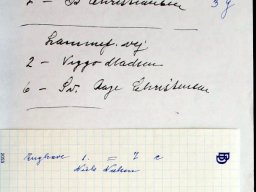 2 - Sv Christiansen 3 g
Hammel. vej
2 - Viggo Madsen
6 - Sv. Aage Christensen
Enghave 1. = 7 c
Niels